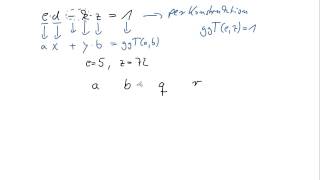 e·d - k·z = 1 → per Konstruktion
ggT(e,z)=1
a x + y b = ggT(a,b)
e=5, z=72
a b q r